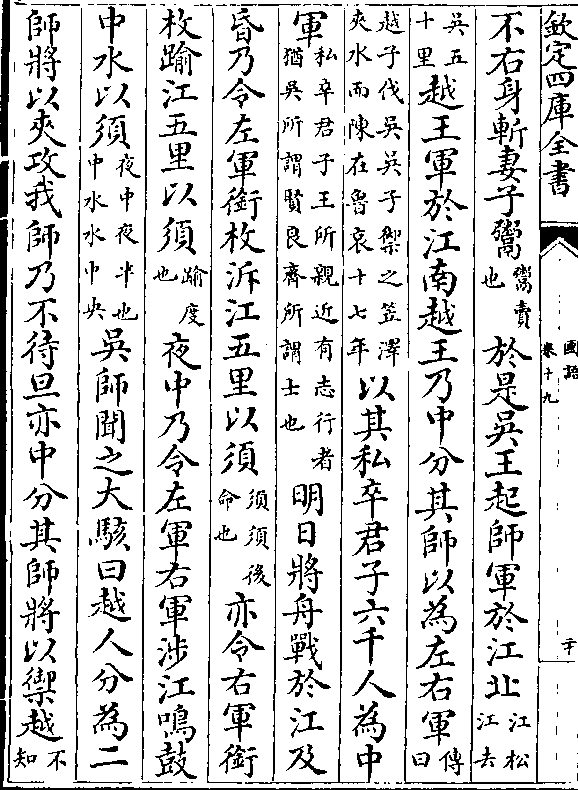 欽定四庫全書
國語
卷十九
二十
不右身斬妻子鬻鬻賣也於是吳王起師軍於江北江松江去
吳五十里越王軍於江南越王乃中分其師以為左右軍傳曰
越子伐吳吳子禦之笠澤夾水而陳在魯哀十七年以其私卒君子六千人為中
軍私卒君子王所親近有志行者猶吳所謂賢良齊所謂士也明日將舟戰於江及
昏乃令左軍銜枚泝江五里以須須須後命也亦令右軍銜
枚踰江五里以須踰度也夜中乃令左軍右軍涉江鳴鼓
中水以須夜中夜半也中水水中央吳師聞之大駭曰越人分為二
師將以夾攻我師乃不待旦亦中分其師將以禦越不知